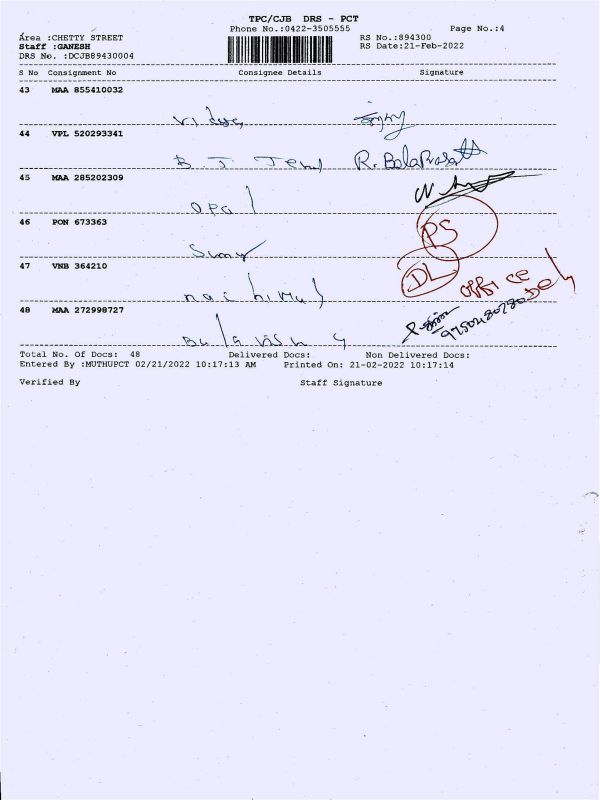 TPC/CJB DRS - PCT
Phone No.:0422-3505555
Page No.:4
Area :CHETTY STREET
RS No.:894300
Staff :GANESH
RS Date:21-Feb-2022
DRS No. :DCJB89430004
S No Consignment No Consignee Details Signature
43 MAA 855410032
44 VPL 520293341
B. J. R. BalaPrasath
45 MAA 285202309
opal
46 PON 673363
PS
47 VNB 364210
DL office
48 MAA 272998727
Total No. Of Docs: 48 Delivered Docs: Non Delivered Docs:
Entered By :MUTHUPCT 02/21/2022 10:17:13 AM Printed On: 21-02-2022 10:17:14
Verified By Staff Signature